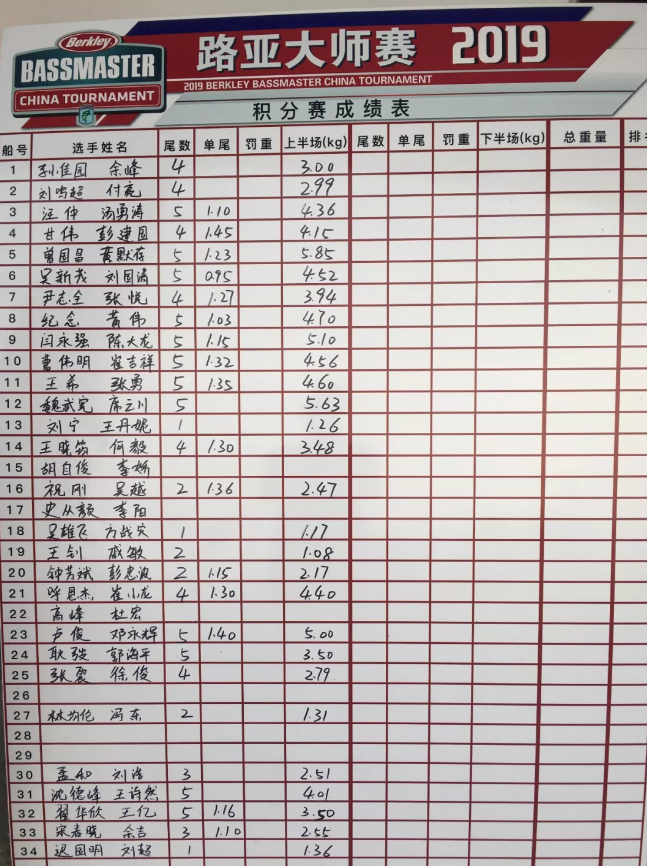 Berkley
BASSMASTER
CHINA TOURNAMENT
路亚大师赛 2019
2019 BERKLEY BASSMASTER CHINA TOURNAMENT
积分赛成绩表
船号 选手姓名 尾数 单尾 罚重 上半场(kg) 尾数 单尾 罚重 下半场(kg) 总重量 排
1 孙佳园 余峰 4 3.00
2 刘鸣超 付亮 4 2.99
3 汪仲 汤勇涛 5 1.10 4.36
4 甘伟 彭建国 4 1.45 4.15
5 曾国昌 黄默存 5 1.23 5.85
6 吴新茂 刘国涛 5 0.95 4.52
7 尹志全 张悦 4 1.27 3.94
8 纪念 黄伟 5 1.03 4.70
9 闫永强 陈大龙 5 1.15 5.10
10 曹伟明 崔吉祥 5 1.32 4.56
11 王希 张勇 5 1.35 4.60
12 魏武宪 席立川 5 5.63
13 刘宁 王丹妮 1 1.26
14 王晓筠 何毅 4 1.30 3.48
15 胡自俊 李娇
16 祝刚 吴越 2 1.36 2.47
17 史从颜 李阳
18 吴雄飞 方战 1 1.17
19 王钊 戚敏 2 1.08
20 钟芳斌 彭忠波 2 1.15 2.17
21 呼思杰 崔小龙 4 1.30 4.40
22 高峰 杜宏
23 卢俊 邓永辉 5 1.40 5.00
24 耿骏 郭海平 5 3.50
25 张震 徐俊 4 2.79
26
27 林均伦 冯东 2 1.31
28
29
30 孟和 刘浩 3 2.51
31 沈德峰 王许然 5 4.01
32 翟华欣 王亿 5 1.16 3.50
33 宋春晓 余吉 3 1.10 2.55
34 迟国明 刘超 1 1.36